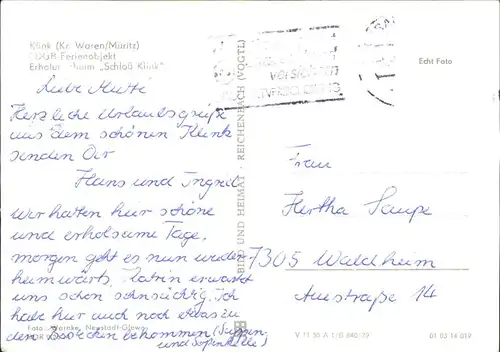 Klink (Kr. Waren/Müritz)
FDGB-Ferienobjekt
Erholungsheim „Schloß Klink"
Echt Foto
Liebe Mutti
Herzliche Urlaubsgrüße
aus dem schönen Klink
senden Dir
Hans und Ingrid
Wir hatten hier schöne
und erholsame Tage,
morgen geht es nun wieder
heimwärts. Katrin erwartet
uns schon sehnsüchtig. Ich
habe hier auch noch etwas zu
den bekommen (Suppen
und Soßenkelle)
BILD UND HEIMAT · REICHENBACH (VOGTL)
Frau
Hertha Saupe
7305 Waldheim
Auestraße 14
Foto: Wernke, Neustadt-Glewe
V 11 50 A 1/B 840/79
01 03 14 019